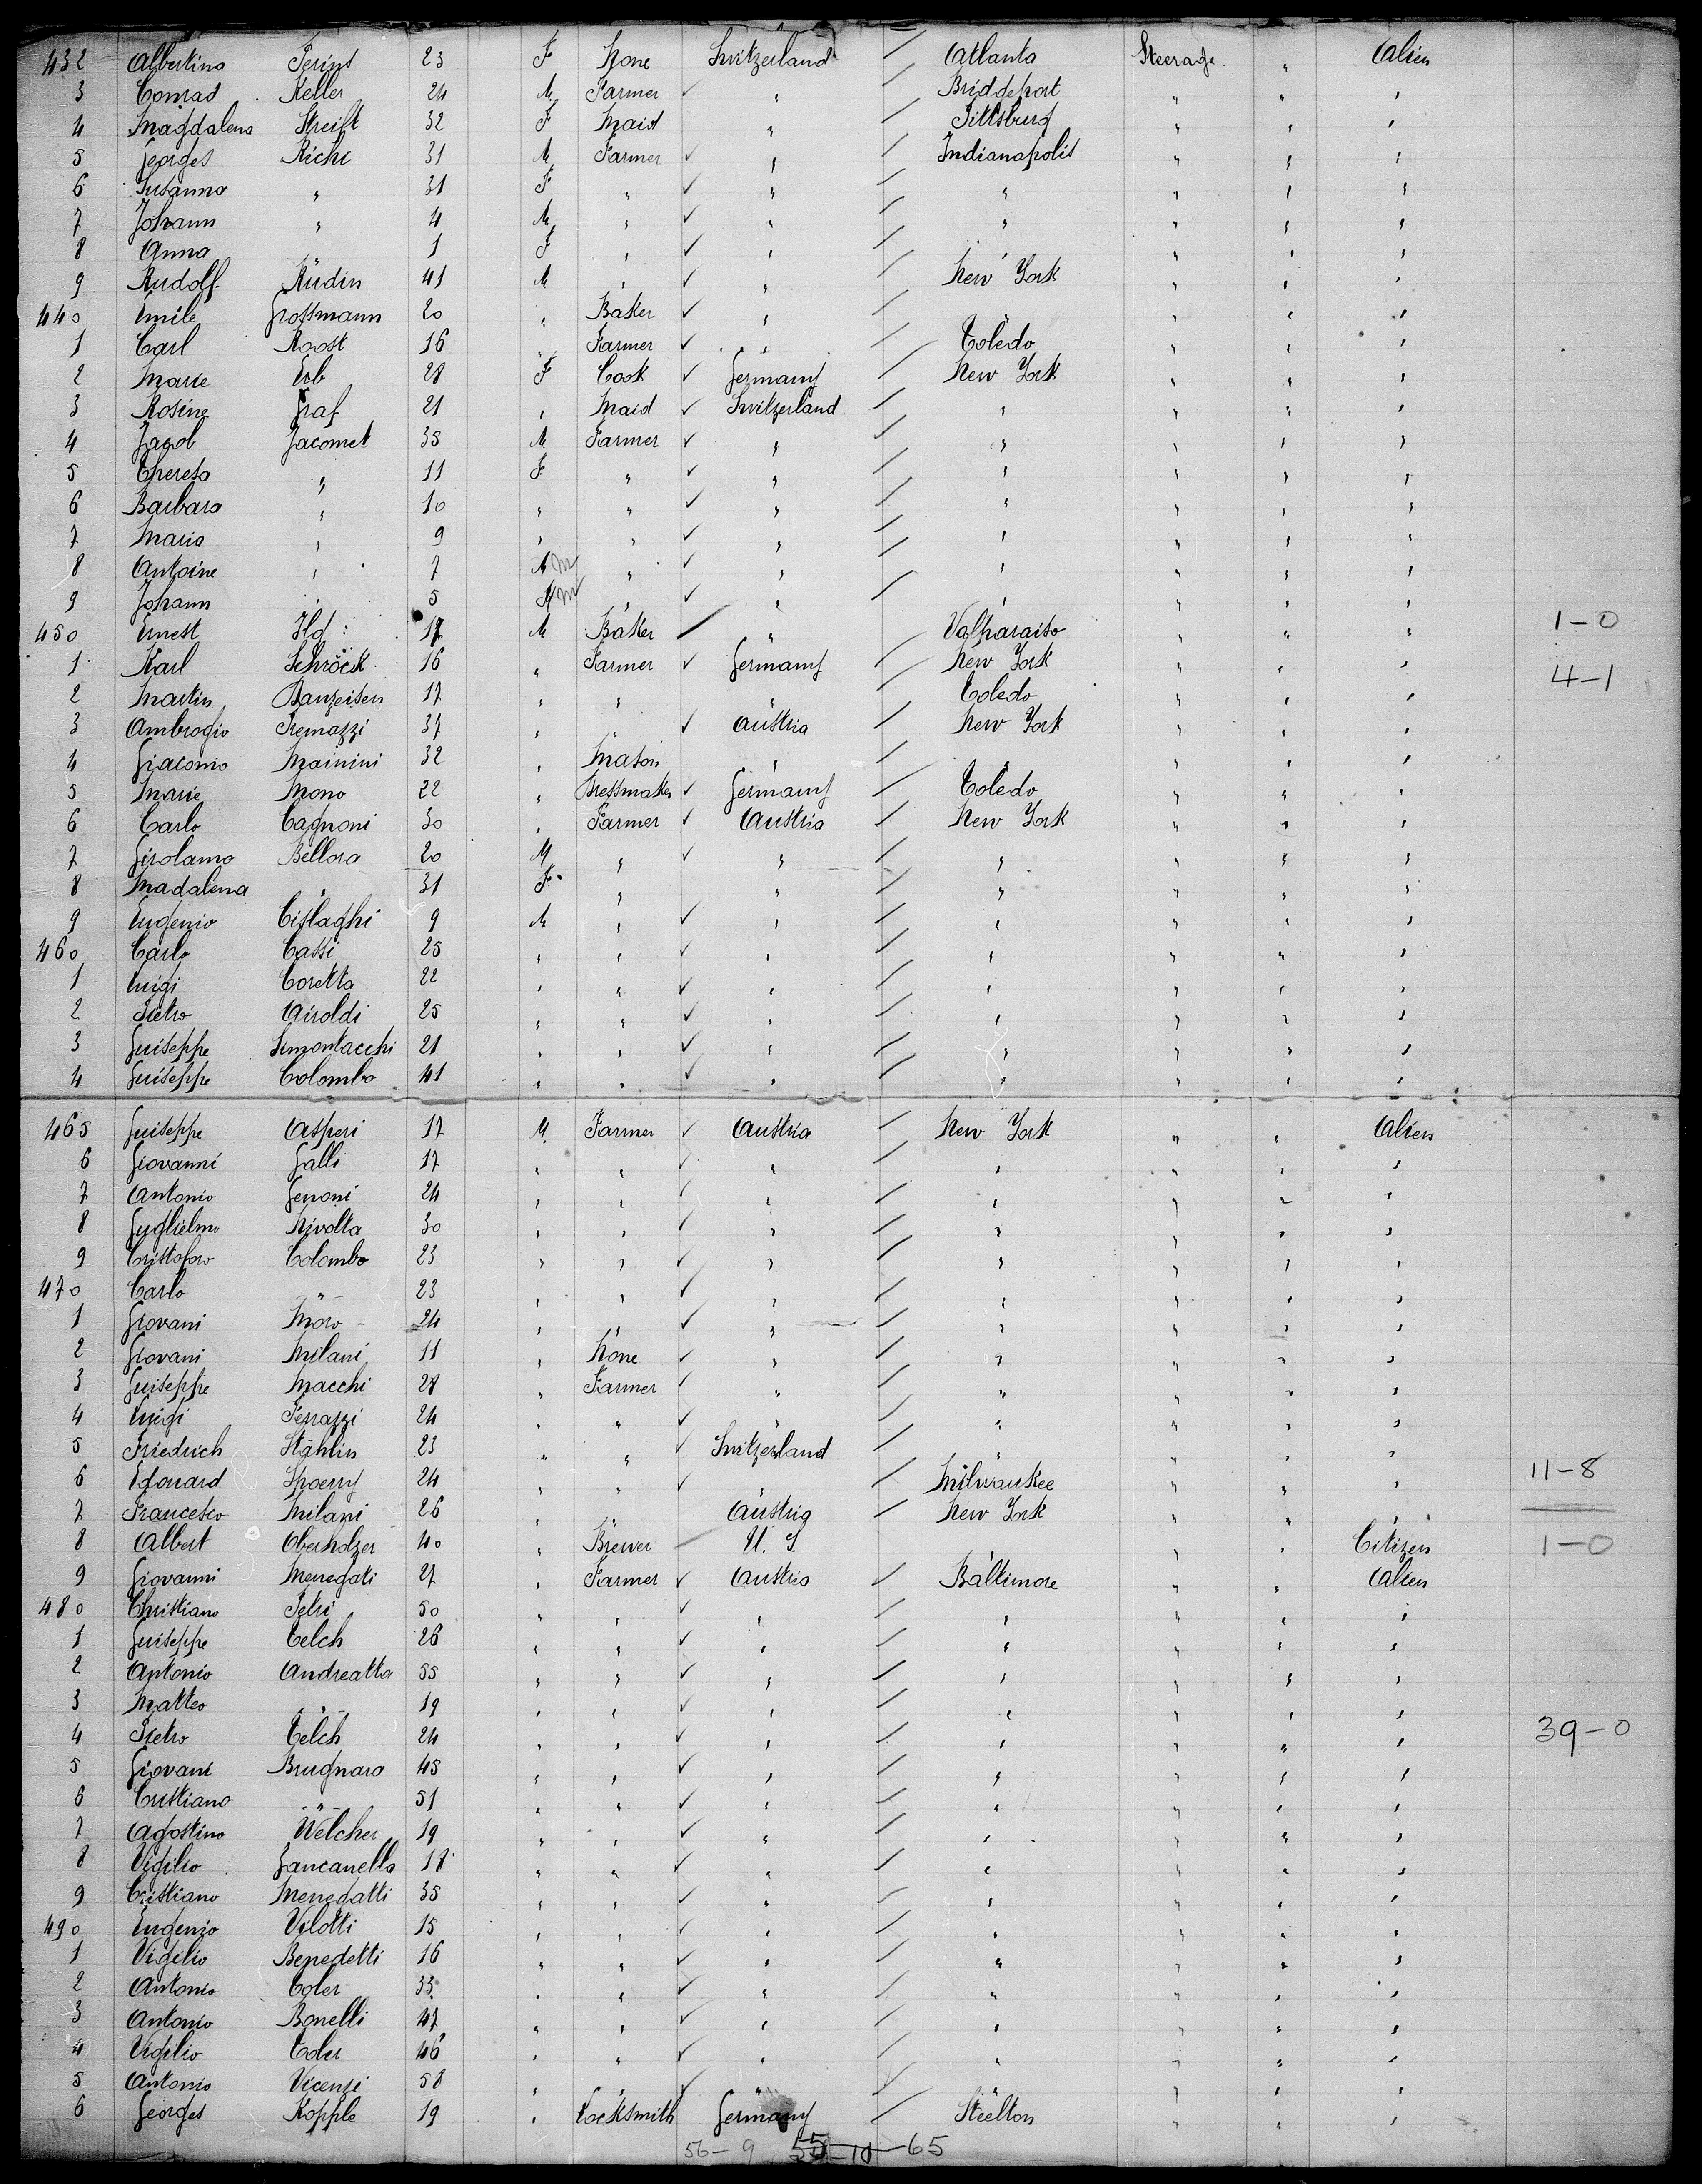 432 Albertina Perint 23 F None Switzerland / Atlanta Steerage " Alien
3 Conrad Keller 24 M Farmer ✓ " / Bridgeport " " "
4 Magdalena Streift 32 F Maid " / Pittsburg " " "
5 Georges Richi 31 M Farmer ✓ " / Indianapolis " " "
6 Susanna " 31 F " ✓ " / " " " "
7 Johann " 4 M " ✓ " / " " " "
8 Anna " 1 F " ✓ " / " " " "
9 Rudolf Rüdin 41 M " ✓ " / New York " " "
440 Emile Grossmann 20 " Baker ✓ " / " " " "
1 Carl Roost 16 " Farmer ✓ " / Toledo " " "
2 Marie Erb 28 F Cook ✓ Germany / New York " " "
3 Rosine Graf 21 " Maid ✓ Switzerland / " " " "
4 Jacob Jacomet 35 M Farmer ✓ " / " " " "
5 Theresa " 11 F " ✓ " / " " " "
6 Barbara " 10 " " ✓ " / " " " "
7 Maria " 9 " " ✓ " / " " " "
8 Antoine " 7 M " ✓ " / " " " "
9 Johann " 5 M " ✓ " / " " " "
450 Ernest Ild : 17 M Baker / " Valparaiso " " " 1-0
1 Karl Schröck 16 " Farmer ✓ Germany / New York " " " 4-1
2 Martin Banzeisen 17 " " " / Toledo " " "
3 Ambrogio Tremazzi 37 " " ✓ Austria / New York " " "
4 Giacomo Mainini 32 " Mason " / " " " "
5 Marie Mono 22 " Dressmaker ✓ Germany / Toledo " " "
6 Carlo Cagnoni 30 " Farmer ✓ Austria / New York " " "
7 Girolamo Bellora 20 M " ✓ " / " " " "
8 Madalena " 31 F " " / " " " "
9 Eugenio Cislaghi 9 M " ✓ " / " " " "
460 Carlo Cassi 25 " " ✓ " / " " " "
1 Luigi Coretta 22 " " ✓ " / " " " "
2 Pietro Airoldi 25 " " ✓ " / " " " "
3 Guiseppe Simontacchi 21 " " ✓ " / " " " "
4 Guiseppe Colombo 41 " " ✓ " / " " " "
465 Guiseppe Asperi 17 M Farmer ✓ Austria / New York " " Alien
6 Giovanni Galli 17 " " ✓ " / " " " "
7 Antonio Genoni 24 " " ✓ " / " " " "
8 Guglielmo Rivolta 30 " " ✓ " / " " " "
9 Cristoforo Colombo 23 " " ✓ " / " " " "
470 Carlo " 23 " " ✓ " / " " " "
1 Giovani Moro 24 " " ✓ " / " " " "
2 Giovani Milani 11 " None ✓ " / " " " "
3 Guiseppe Macchi 28 " Farmer ✓ " / " " " "
4 Luigi Ferrazzi 24 " " ✓ " / " " " "
5 Friedrich Stählin 23 " " ✓ Switzerland / " " " "
6 Edouard Spoerry 24 " " ✓ " / Milwaukee " " " 11-8
7 Francesco Milani 26 " " Austria / New York " " "
8 Albert Oberholzer 40 " Brewer U. S. " " Citizen 1-0
9 Giovanni Menegati 27 " Farmer ✓ Austria / Baltimore " " Alien
480 Christiano Petri 50 " " ✓ " / " " " "
1 Guiseppe Telch 26 " " ✓ " / " " " "
2 Antonio Andreatta 55 " " ✓ " / " " " "
3 Matteo " 19 " " ✓ " / " " " "
4 Pietro Telch 24 " " ✓ " / " " " " 39-0
5 Giovani Brugnara 45 " " ✓ " / " " " "
6 Cristiano " 51 " " ✓ " / " " " "
7 Agostino Welcher 19 " " ✓ " / " " " "
8 Vigilio Zancanella 18 " " ✓ " / " " " "
9 Cristiano Menegatti 35 " " ✓ " / " " " "
490 Eugenio Vilotti 15 " " ✓ " / " " " "
1 Vigilio Benedetti 16 " " ✓ " / " " " "
2 Antonio Toler 33 " " ✓ " / " " " "
3 Antonio Bonelli 47 " " ✓ " / " " " "
4 Vigilio Toler 46 " " ✓ " / " " " "
5 Antonio Vicensi 58 " " ✓ " / " " " "
6 Georges Kopple 19 " Locksmith Germany / Steelton " " "
56-9 55-10 -65